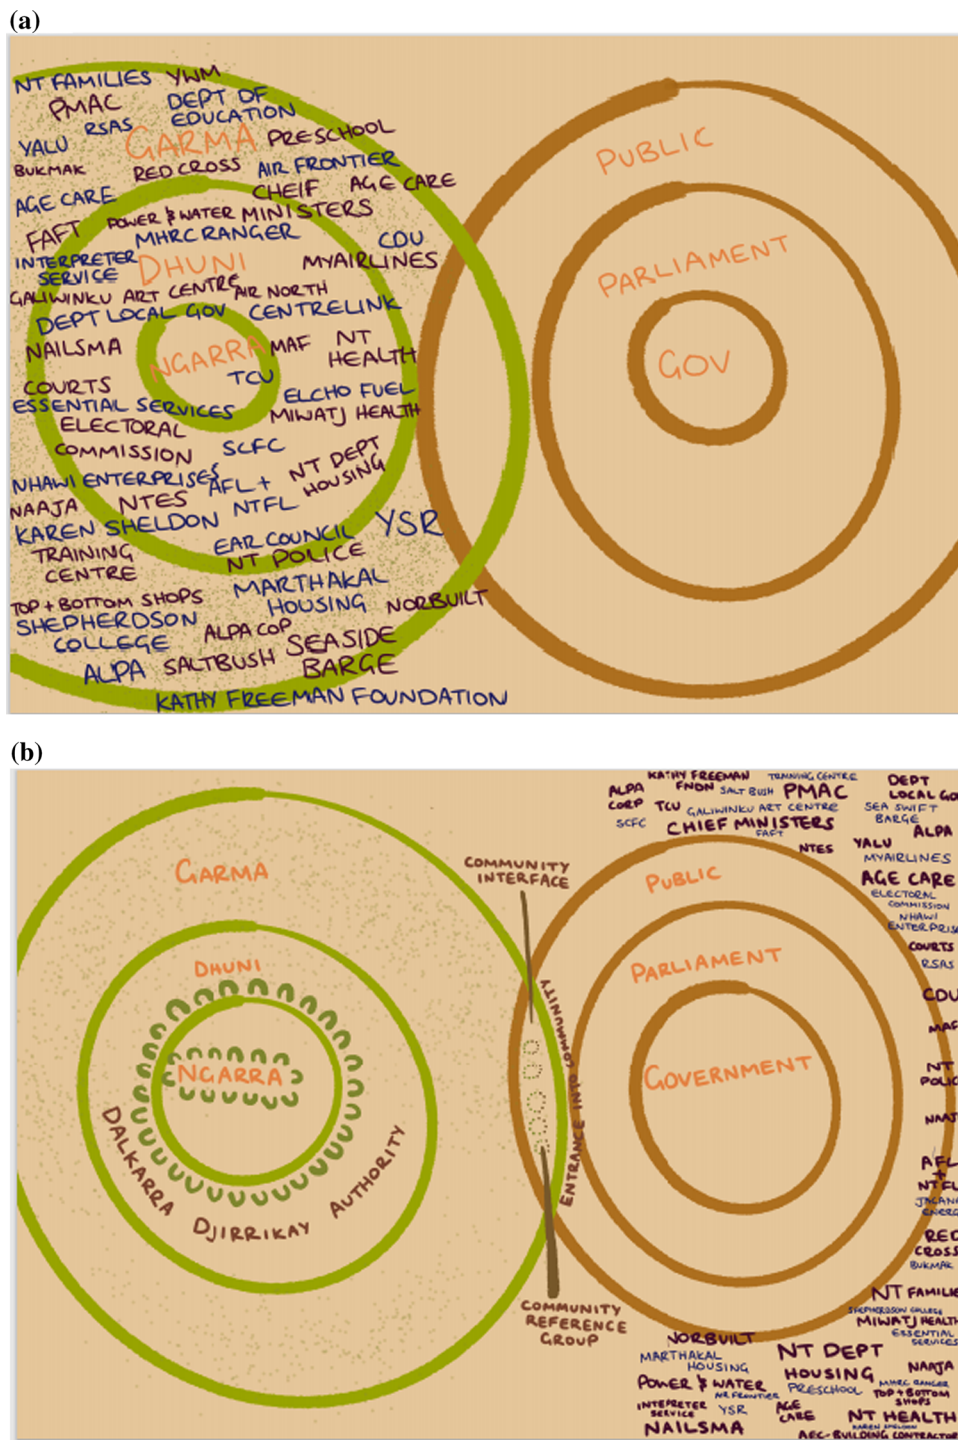 (a)
NT FAMILIES YWM
PMAC DEPT OF
EDUCATION
YALU RSAS GARMA PRESCHOOL
BUKMAK RED CROSS AIR FRONTIER
AGE CARE CHEIF AGE CARE
FAFT POWER & WATER MINISTERS
MHRC RANGER CDU
INTERPRETER
SERVICE DHUNI MYAIRLINES
GALIWINKU ART CENTRE AIR NORTH
DEPT LOCAL GOV CENTRELINK
NAILSMA NGARRA MAF NT
HEALTH
TCU
COURTS ELCHO FUEL
ESSENTIAL SERVICES MIWATJ HEALTH
ELECTORAL
COMMISSION SCFC
NHAWI ENTERPRISES AFL + NT DEPT
HOUSING
NAAJA NTES NTFL
KAREN SHELDON YSR
TRAINING
CENTRE EAR COUNCIL
NT POLICE
MARTHAKAL
HOUSING NORBUILT
TOP + BOTTOM SHOPS
SHEPHERDSON
COLLEGE ALPA COP SEASIDE
BARGE
ALPA SALTBUSH
KATHY FREEMAN FOUNDATION
PUBLIC
PARLIAMENT
GOV
(b)
GARMA
DHUNI
NGARRA
DALKARRA DJIRRIKAY AUTHORITY
COMMUNITY
INTERFACE
ENTRANCE INTO COMMUNITY
COMMUNITY
REFERENCE
GROUP
PUBLIC
PARLIAMENT
GOVERNMENT
KATHY FREEMAN
FNDN
TRAINING CENTRE
DEPT
LOCAL GO
ALPA
CORP
SALT BUSH
PMAC
TCU
GALIWINKU ART CENTRE
SEA SWIFT
BARGE
SCFC
CHIEF MINISTERS
FAFT
ALPA
NTES
YALU
MYAIRLINES
AGE CARE
ELECTORAL
COMMISSION
NHAWI
ENTERPRIS
COURTS
RSAS
CDU
MAF
NT
POLIC
NAAJ
AFL
+
NTFL
JACANA
ENERG
RED
CROSS
BUKMAK
NT FAMILIE
SHEPHERDSON COLLEGE
MIWATJ HEALTH
ESSENTIAL
SERVICES
NORBUILT
MARTHAKAL
HOUSING
NT DEPT
HOUSING
NAAJA
POWER & WATER
AIR FRONTIER
PRESCHOOL
MHRC RANGER
TOP + BOTTOM
SHOPS
INTERPRETER
SERVICE
YSR
AGE
CARE
NT HEALTH
KAREN SHELDON
NAILSMA
AEC-BUILDING CONTRACTOR